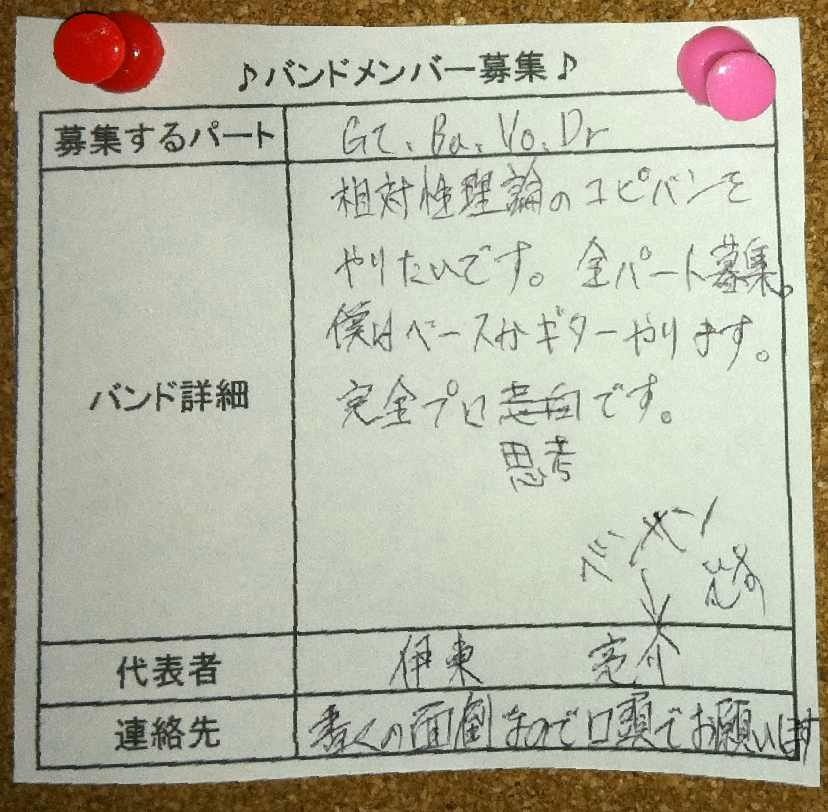 ♪バンドメンバー募集♪
募集するパート Gt、Ba、Vo、Dr
バンド詳細
相対性理論のコピバンを
やりたいです。全パート募集。
僕はベースかギターやります。
完全プロ志向です。
思考
代表者 伊東 亮介
連絡先 書くの面倒なので口頭でお願いします